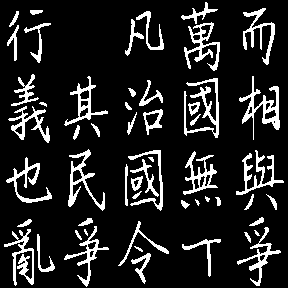 而相與爭
萬國無丅
凡治國令
其民爭
行義也亂